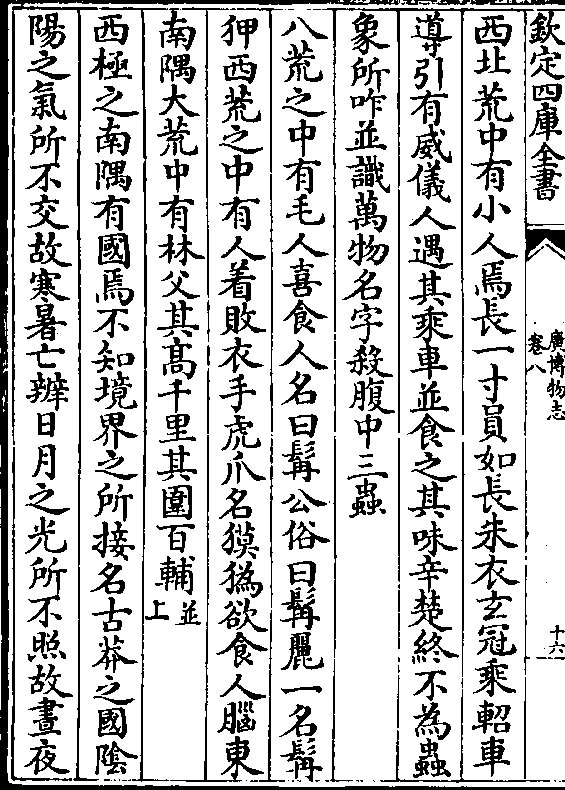 欽定四庫全書
廣博物志
卷八
十六
西北荒中有小人焉長一寸員如長朱衣玄冠乘軺車
導引有威儀人遇其乘車並食之其味辛楚終不為蟲
象所咋並識萬物名字殺腹中三蟲
八荒之中有毛人喜食人名曰髯公俗曰髯麗一名髯
狎西荒之中有人着敗衣手虎爪名獏㺔欲食人腦東
南隅大荒中有林父其髙千里其圍百輔並上
西極之南隅有國焉不知境界之所接名古莽之國隂
陽之氣所不交故寒暑亡辨日月之光所不照故晝夜